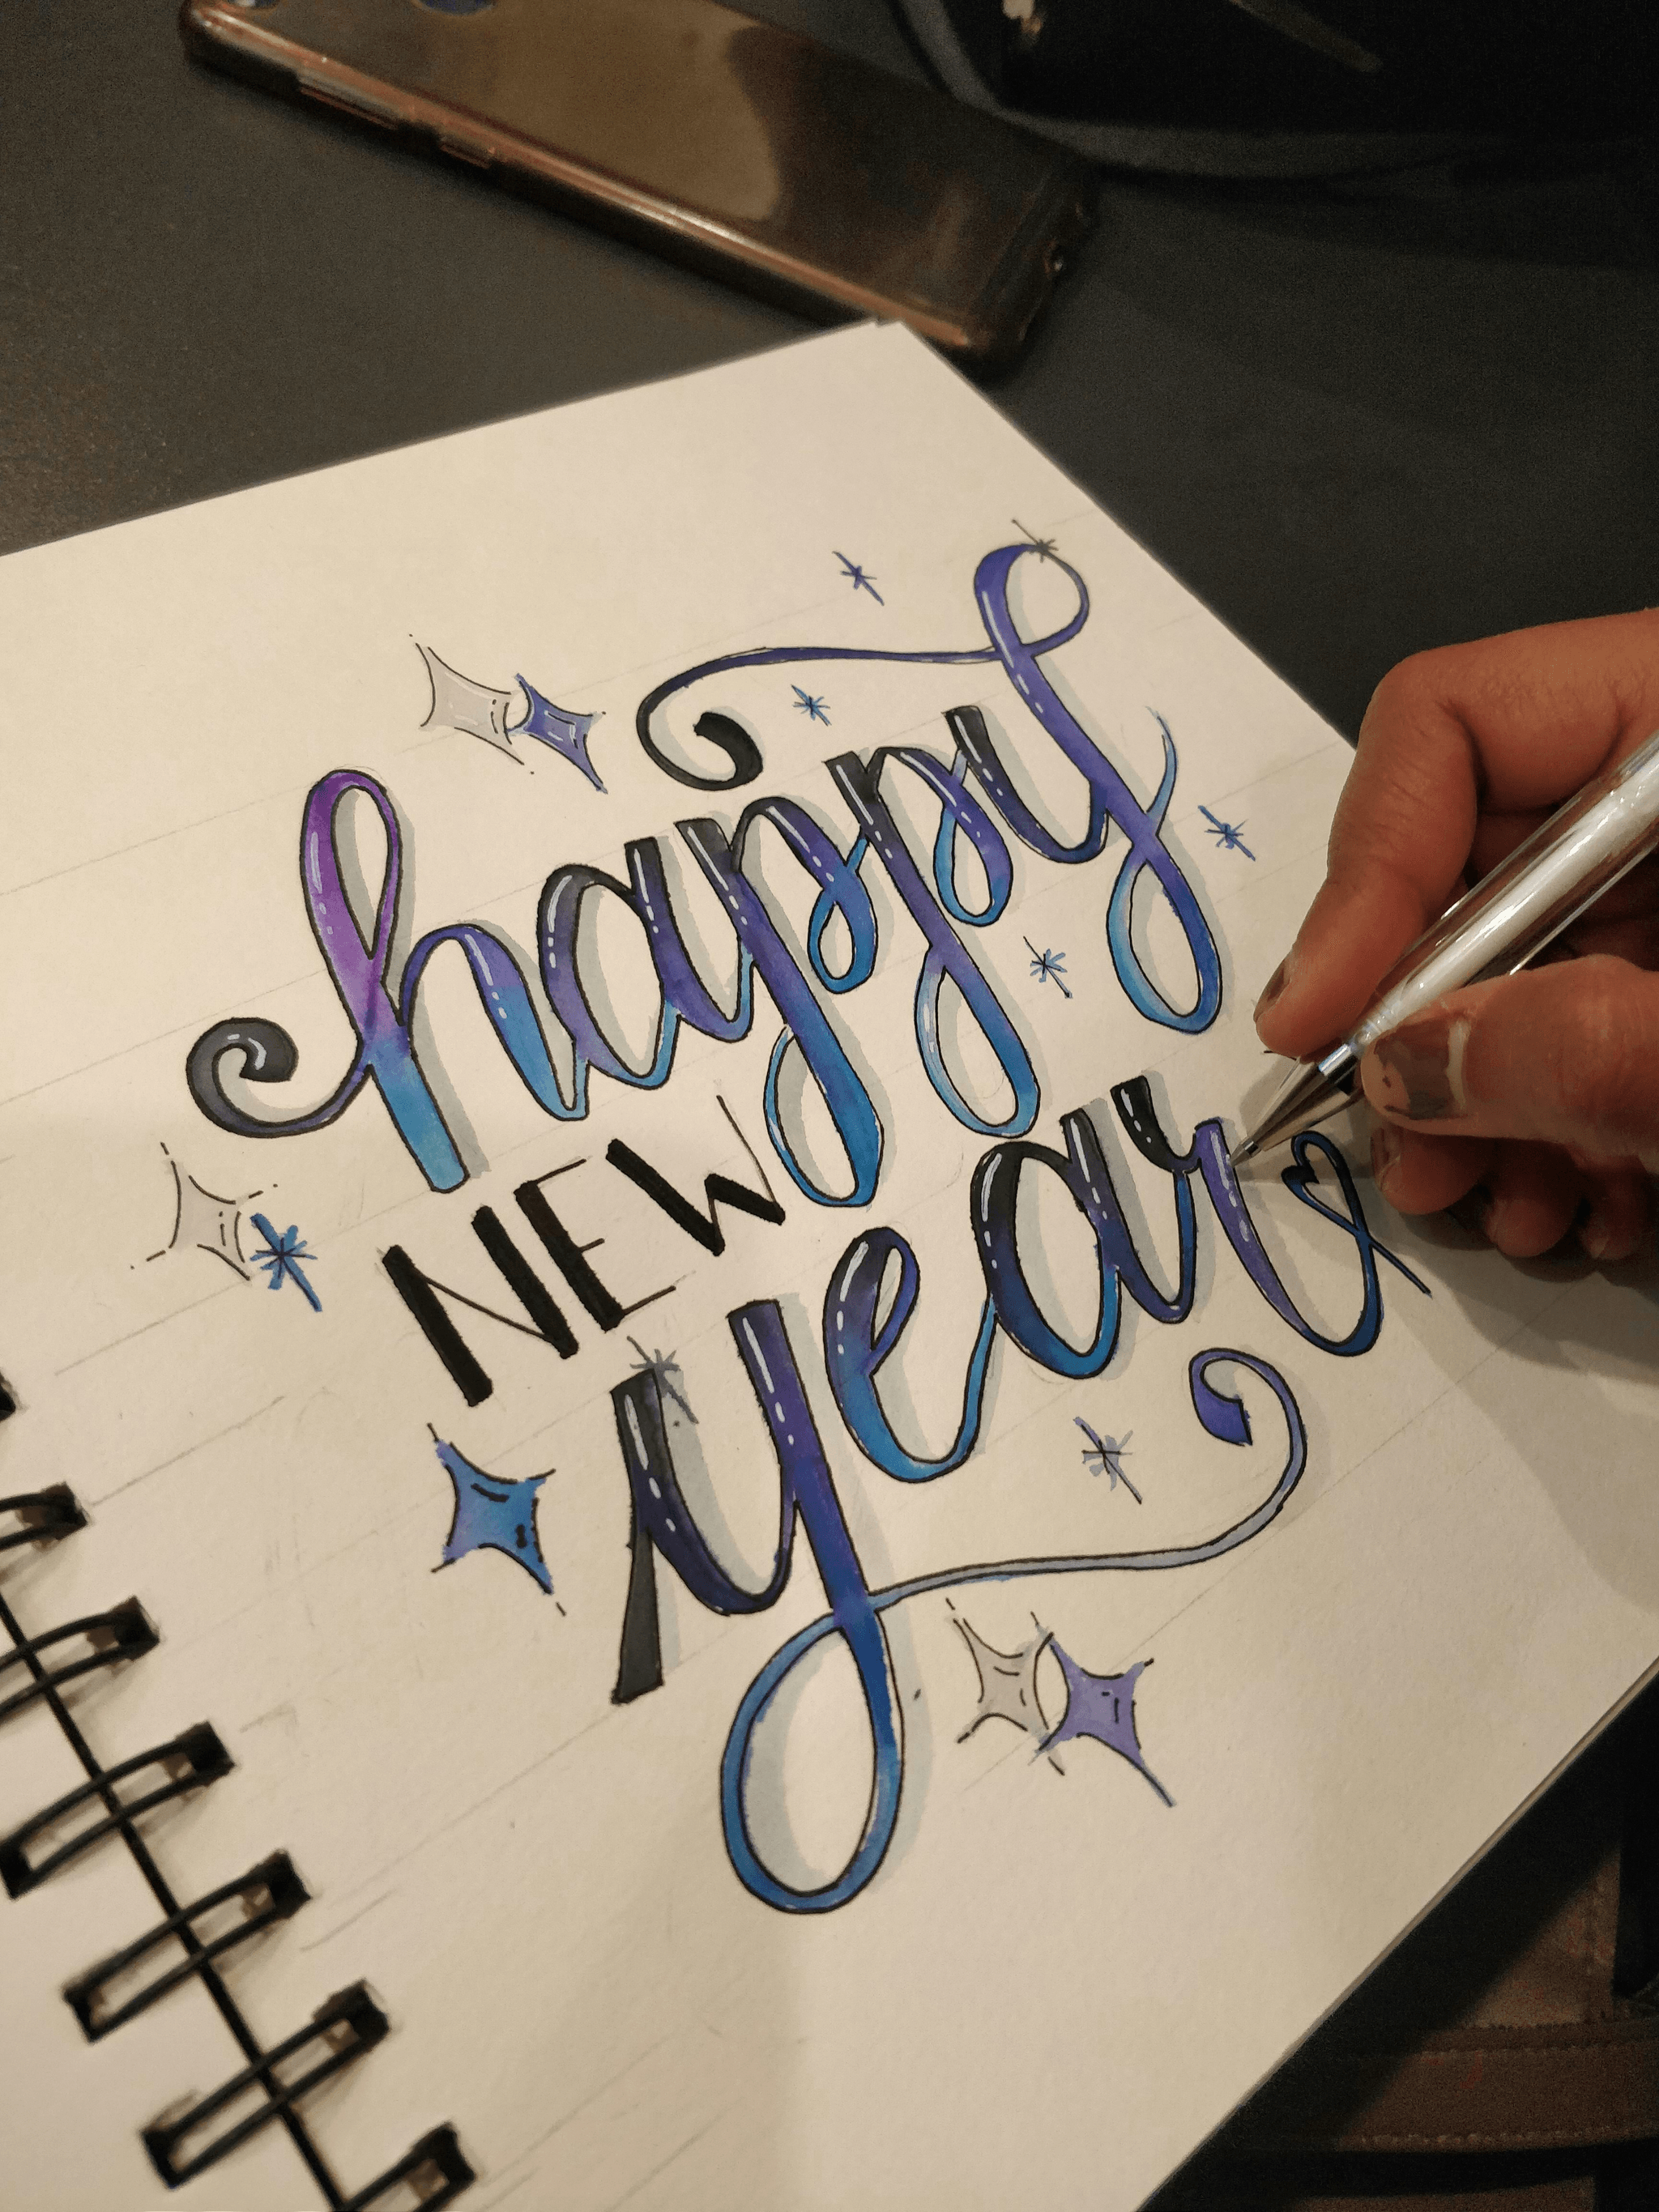 happy
NEW
year